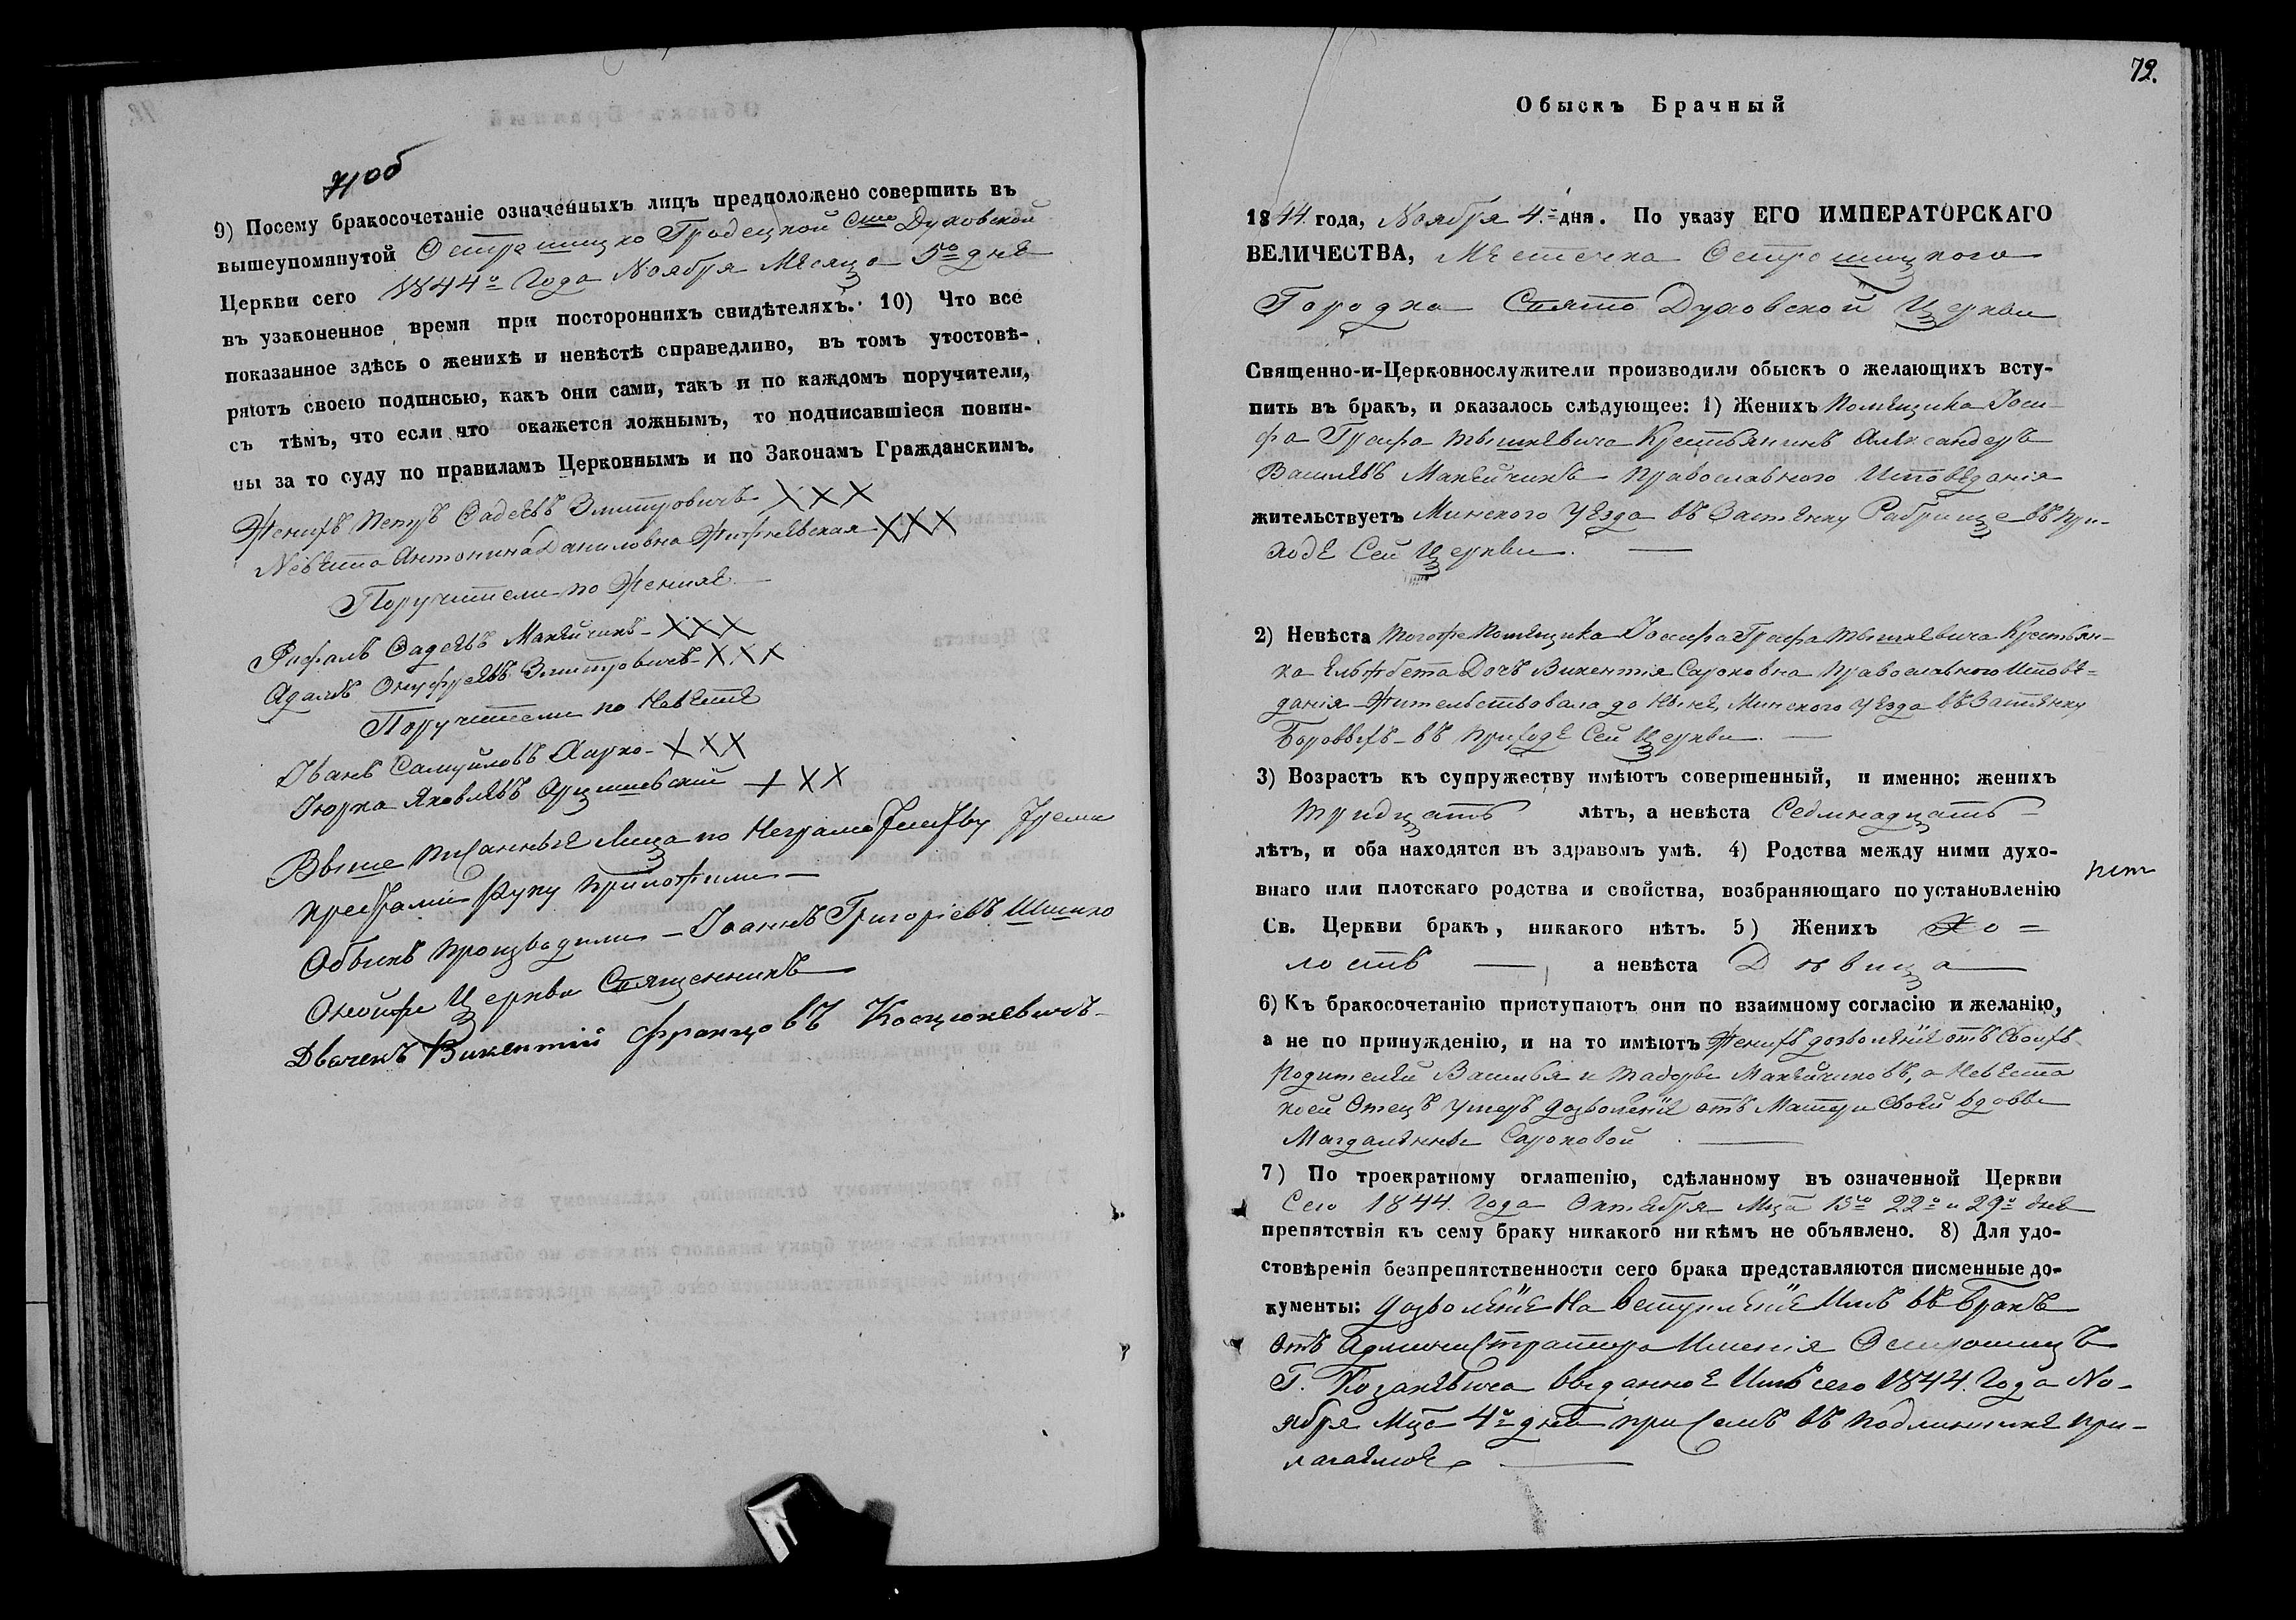 71 об
9) Посему бракосочетаніе означенныхъ лицъ предположено совершить въ
вышеупомянутой Острошицко Градецкой Свто Духовской
Церкви сего 1844го Года Ноября Месяца 5го дня
въ узаконенное время при постороннихъ свидѣтеляхъ. 10) Что все
показанное здѣсь о женихѣ и невѣстѣ справедливо, въ томъ утостовѣ-
ряютъ своею подписью, какъ они сами, такъ и по каждомъ поручители,
съ тѣмъ, что если что окажется ложнымъ, то подписавшіеся повин-
ны за то суду по правиламъ Церковнымъ и по Законамъ Гражданскимъ.
Женихъ Петръ Фадеевъ Змитровичъ ХХХ
Невѣста Антонина Даниловна ХХХ
Поручители по Женихе
Рафалъ Фадеевъ Макейчикъ - ХХХ
Адамъ Онуфріевъ Змитровичъ - ХХХ
Поручители по Невѣсте
Іванъ Самуйловъ - ХХХ
Іюрка Яковлевъ ХХХ
Выше писанные лица по Неграмотству Тремя
крестами руку приложили
Обыскъ производили - Іоаннъ Григоріевъ Шишко
Оной же Церкви Священникъ
Дьячекъ Викентій Францовъ Косцюкевичъ
72.
Обыскъ Брачный
1844 года, Ноября 4. дня. По указу ЕГО ИМПЕРАТОРСКАГО
ВЕЛИЧЕСТВА, Местечка Острошицкого
Городка Свято Духовской Церкви
Священно-и-Церковнослужители производили обыскъ о желающихъ всту-
пить въ бракъ, и оказалось слѣдующее: 1) Женихъ Помѣщика Іоси-
фа Графа Тышкевича Крестьянинъ Александеръ
Василевъ Макейчикъ Православного Исповеданія
жительствуетъ Минского Уезда въ Застенку въ при-
ходе Сей Церкви.
2) Невѣста того же Помещика Іосифа Графа Тышкевича Крестьян-
ка Ельжбета Дочъ Викентія Сароковна Православного Испове-
данія Жительствовала до Ныне, Минского Уезда въ Застенку
Боровыхъ - въ приходе Сей Церкви.
3) Возрастъ къ супружеству имѣютъ совершенный, и именно: женихъ
тридцать лѣтъ, а невѣста Седмнадцать
лѣтъ, и оба находятся въ здравомъ умѣ. 4) Родства между ними духо-
внаго или плотскаго родства и свойства, возбраняющаго по установленію
нет
Св. Церкви бракъ, никакого нѣтъ. 5) Женихъ Хо=
лостъ а невѣста Дѣвица
6) Къ бракосочетанію приступаютъ они по взаимному согласію и желанію,
а не по принужденію, и на то имѣютъ Женихъ дозволеніе отъ Своихъ
Родителей Василья и Макейчиковъ, а Невеста
коей Отецъ умеръ дозволеніе отъ Матери Своей вдовы
Магдаленны Сароковой
7) По троекратному оглашенію, сдѣланному въ означенной Церкви
Сего 1844. Года Октября Мца 15го 22го и 29го дня
препятствія къ сему браку никакого ни кѣмъ не объявлено. 8) Для удо-
стовѣренія безпрепятственности сего брака представляются писменные до-
кументы: дозволеніе на вступленіе Имъ въ Бракъ
отъ Администратора Именія Острошицъ
Г. Козакевича выданное Имъ сего 1844. Года Но-
ября Мца 4го дня при семъ въ подлиннике при-
лагаемое